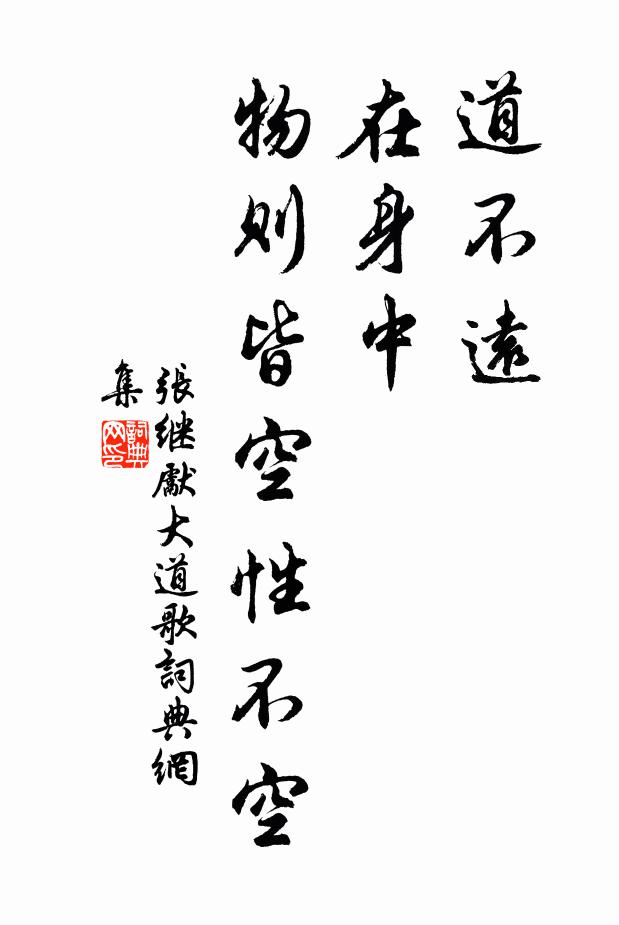 道不遠
在身中
物則皆空性不空
張继獻大道歌詞典網
集
詞典
网印